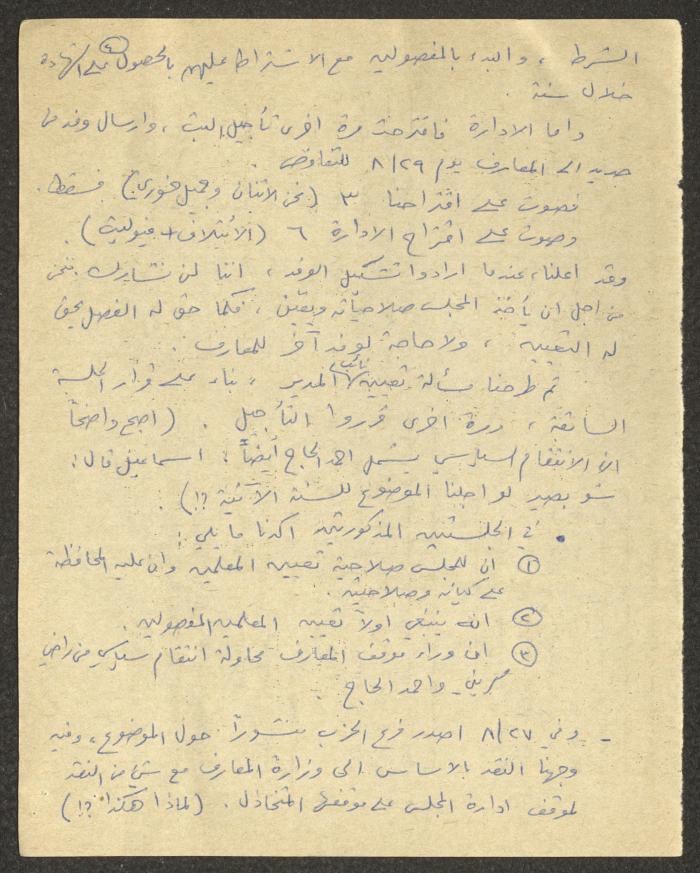 الشرط ، والبدء بالمفصولين مع الاشتراط عليهم بالحصول على الشهادة
٤
خلال سنة .
واما الادارة فاقترحت مرة اخرى تأجيل البت ، وارسال وفد من
جديد الى المعارف يوم ٨/٢٩ للتفاوض .
فصوت على اقتراحنا ٣ (نحن الاثنان وجميل خوري) فسقط .
وصوت على اقتراح الادارة ٦ (الائتلاف + ) .
وقد اعلنا، عندما ارادوا تشكيل الوفد ، اننا لن نشارك . نحن
من اجل ان يأخذ المجلس صلاحياته ويعيّن ، فكما حق له الفصل يحق
له التعيين ، ولا حاجة لوفد آخر للمعارف .
ثم طرحنا مسألة تعيين نائب المدير ، بناء على قرار الجلسة
السابقة ، ومرة اخرى قرروا التأجيل . (اصبح واضحاً
ان الانتقام السياسي يشمل احمد الحاج أيضاً : اسماعيل قال:
شو بصير لو اجلنا الموضوع للسنة الآتية ؟!) .
• في الجلستين المذكورتين اكدنا ما يلي :
① ان للمجلس صلاحية تعيين المعلمين وان عليه المحافظة
على كيانه وصلاحيته .
② انه ينبغي اولاً تعيين المعلمين المفصولين .
③ ان وراء موقف المعارف محاولة انتقام سياسي من راضي
واحمد الحاج .
- وفي ٨/٢٧ اصدر فرع الحزب منشوراً حول الموضوع ، وفيه
وجهنا النقد بالاساس الى وزارة المعارف مع شيء من النقد
لموقف ادارة المجلس على موقفها المتخاذل . (لماذا هكذا ؟!)